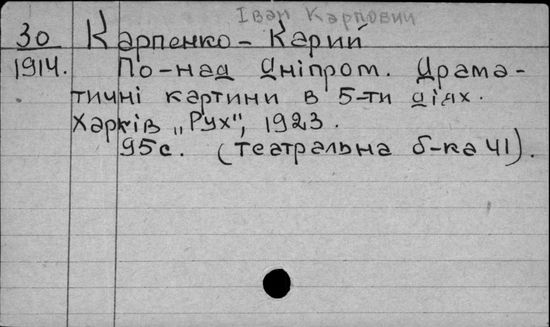 Іван Карпович
30 Карпенко-Карий
1914. По-над Дніпром. Драма-
тичні картини в 5-ти діях.
Харків „Рух”, 1923.
95с. (театральна б-ка 41).